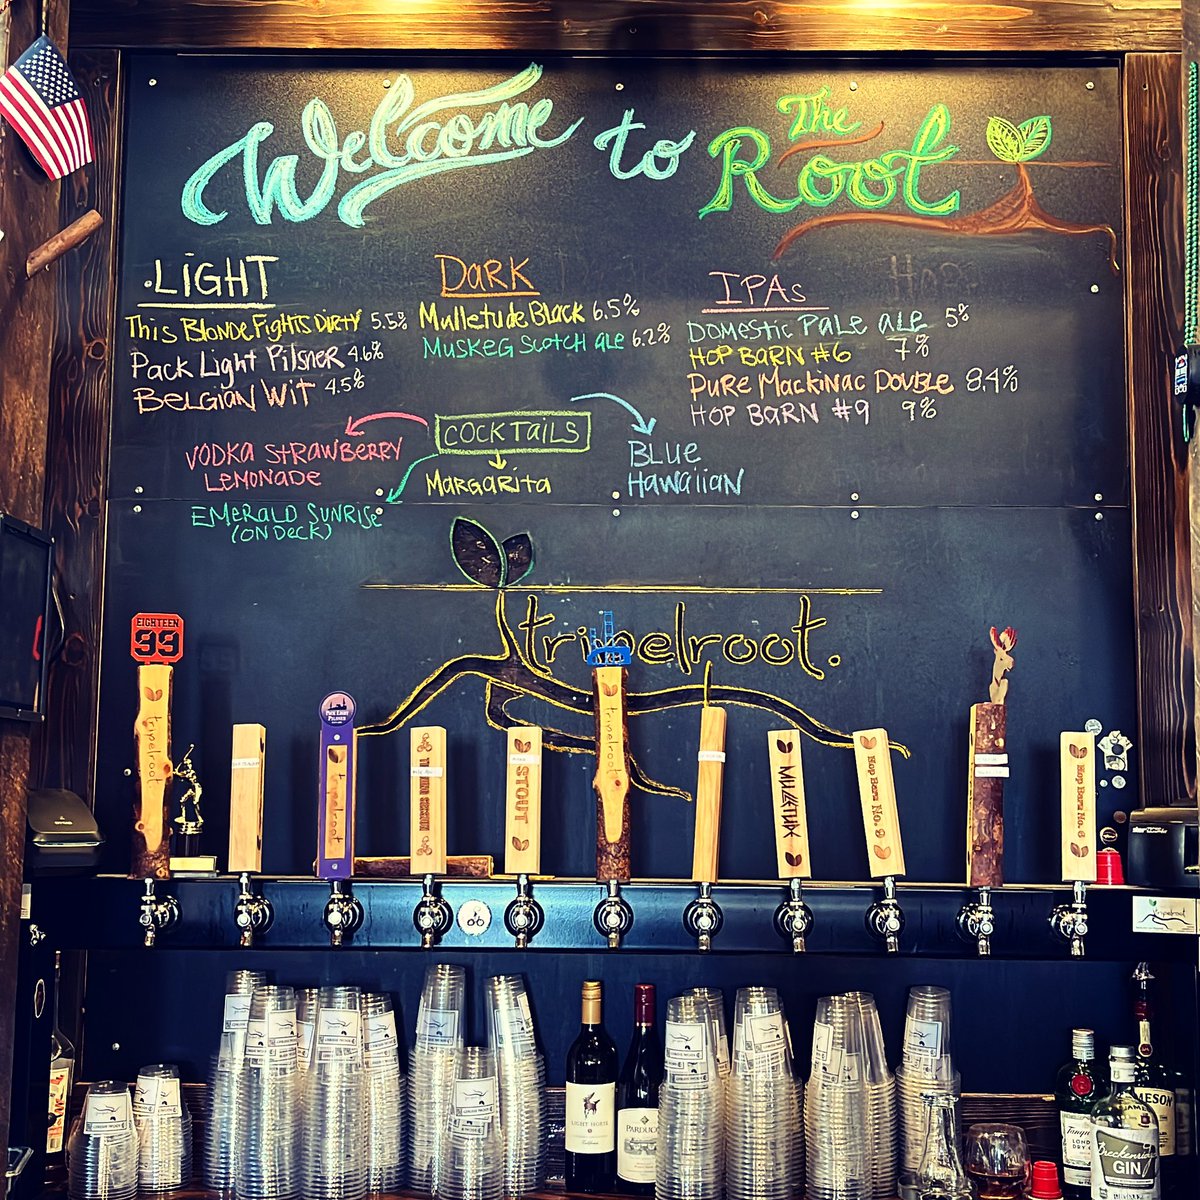 Welcome to The Root
LIGHT
This Blonde Fights Dirty 5.5%
Pack Light Pilsner 4.6%
Belgian Wit 4.5%
Dark
Mulletude Black 6.5%
Muskeg Scotch Ale 6.2%
IPAs
Domestic Pale Ale 5%
Hop Barn #6 7%
Pure Mackinac Double 8.4%
Hop Barn #9 9%
Cocktails
Vodka Strawberry
Lemonade
Emerald Sunrise
(On Deck)
Margarita
Blue
Hawaiian
tripelroot.
EIGHTEEN
99
tripelroot
PACK LIGHT
PILSNER
tripelroot
STOUT
tripelroot
MULLETUDE
Hop Barn No. 9
Hop Barn No. 6
tripelroot
LIGHT HORSE
PARDUCCI
Tanqueray
JAMESON
Breckenridge
GIN